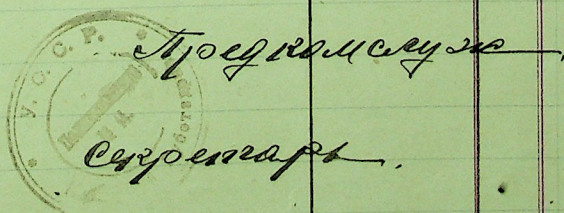 У.С.С.Р.
Предкомслуж
Секретарь.